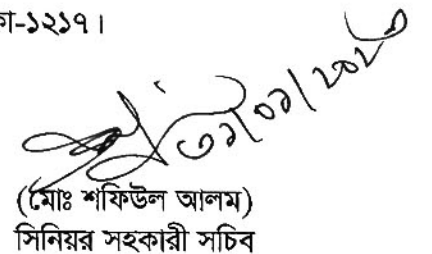 কা-১২১৭।
৩১/০১/২০২৩
(মোঃ শফিউল আলম)
সিনিয়র সহকারী সচিব